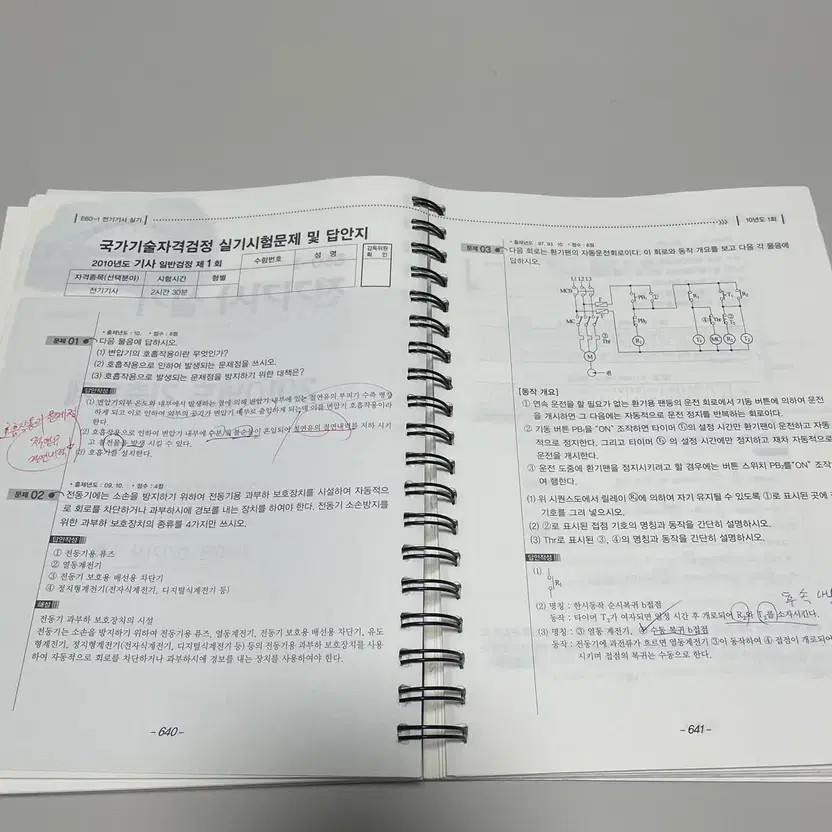 E60-1 전기기사 실기
국가기술자격검정 실기시험문제 및 답안지
2010년도 기사 일반검정 제1회
수험번호
성 명
감독위원
확 인
자격종목(선택분야)
시험시간
형별
전기기사
2시간 30분
• 출제년도 : 10. • 점수 : 8점
문제 01 다음 물음에 답하시오.
(1) 변압기의 호흡작용이란 무엇인가?
(2) 호흡작용으로 인하여 발생되는 문제점을 쓰시오.
(3) 호흡작용으로 발생되는 문제점을 방지하기 위한 대책은?
답안작성
(1) 변압기외부 온도와 내부에서 발생하는 열에 의해 변압기 내부에 있는 절연유의 부피가 수축 팽창
하게 되고 이로 인하여 외부의 공기가 변압기 내부로 출입하게 되는데 이를 변압기 호흡작용이라
한다.
(2) 호흡작용으로 인하여 변압기 내부에 수분 및 불순물이 혼입되어 절연유의 절연내력을 저하 시키
고 침전물을 발생 시킬 수 있다.
(3) 호흡기를 설치한다.
호흡작용의 문제점
절연유
절연내력
• 출제년도 : 09. 10. • 점수 : 4점
문제 02 전동기에는 소손을 방지하기 위하여 전동기용 과부하 보호장치를 시설하여 자동적으
로 회로를 차단하거나 과부하시에 경보를 내는 장치를 하여야 한다. 전동기 소손방지를
위한 과부하 보호장치의 종류를 4가지만 쓰시오.
답안작성
① 전동기용 퓨즈
② 열동계전기
③ 전동기 보호용 배선용 차단기
④ 정지형계전기(전자식계전기, 디지털식계전기 등)
해설
전동기 과부하 보호장치의 시설
전동기는 소손을 방지하기 위하여 전동기용 퓨즈, 열동계전기, 전동기 보호용 배선용 차단기, 유도
형계전기, 정지형계전기(전자식계전기, 디지털식계전기 등) 등의 전동기용 과부하 보호장치를 사용
하여 자동적으로 회로를 차단하거나 과부하시에 경보를 내는 장치를 사용하여야 한다.
- 640 -
10년도 1회
• 출제년도 : 97. 03. 10. • 점수 : 6점
문제 03 다음 회로는 환기팬의 자동운전회로이다. 이 회로와 동작 개요를 보고 다음 각 물음에
답하시오.
L1 L2 L3
MCB
MC
③
Thr
M
팬
PB₁
①
PB₂
R₁
R₁
T₁
R₂
④
Thr
②
T₂
T₁
MC
R₂
T₂
[동작 개요]
① 연속 운전을 할 필요가 없는 환기용 팬등의 운전 회로에서 기동 버튼에 의하여 운전
을 개시하면 그 다음에는 자동적으로 운전 정지를 반복하는 회로이다.
② 기동 버튼 PB₁을 "ON" 조작하면 타이머 T₁의 설정 시간만 환기팬이 운전하고 자동
적으로 정지한다. 그리고 타이머 T₂의 설정 시간에만 정지하고 재차 자동적으로
운전을 개시한다.
③ 운전 도중에 환기팬을 정지시키려고 할 경우에는 버튼 스위치 PB₂를 "ON" 조작
여 행한다.
(1) 위 시퀀스도에서 릴레이 R₁에 의하여 자기 유지될 수 있도록 ①로 표시된 곳에
기호를 그려 넣으시오.
(2) ②로 표시된 접점 기호의 명칭과 동작을 간단히 설명하시오.
(3) Thr로 표시된 ③, ④의 명칭과 동작을 간단히 설명하시오.
답안작성
(1) R₁
(2) 명칭 : 한시동작 순시복귀 b접점
동작 : 타이머 T₂가 여자되면 일정 시간 후 개로되어 R₂와 T₂를 소자시킨다.
(3) 명칭 : ③ 열동 계전기, ④ 수동 복귀 b접점
동작 : 전동기에 과전류가 흐르면 열동계전기 ③이 동작하여 ④ 접점이 개로되어
시키며 접점의 복귀는 수동으로 한다.
- 641 -